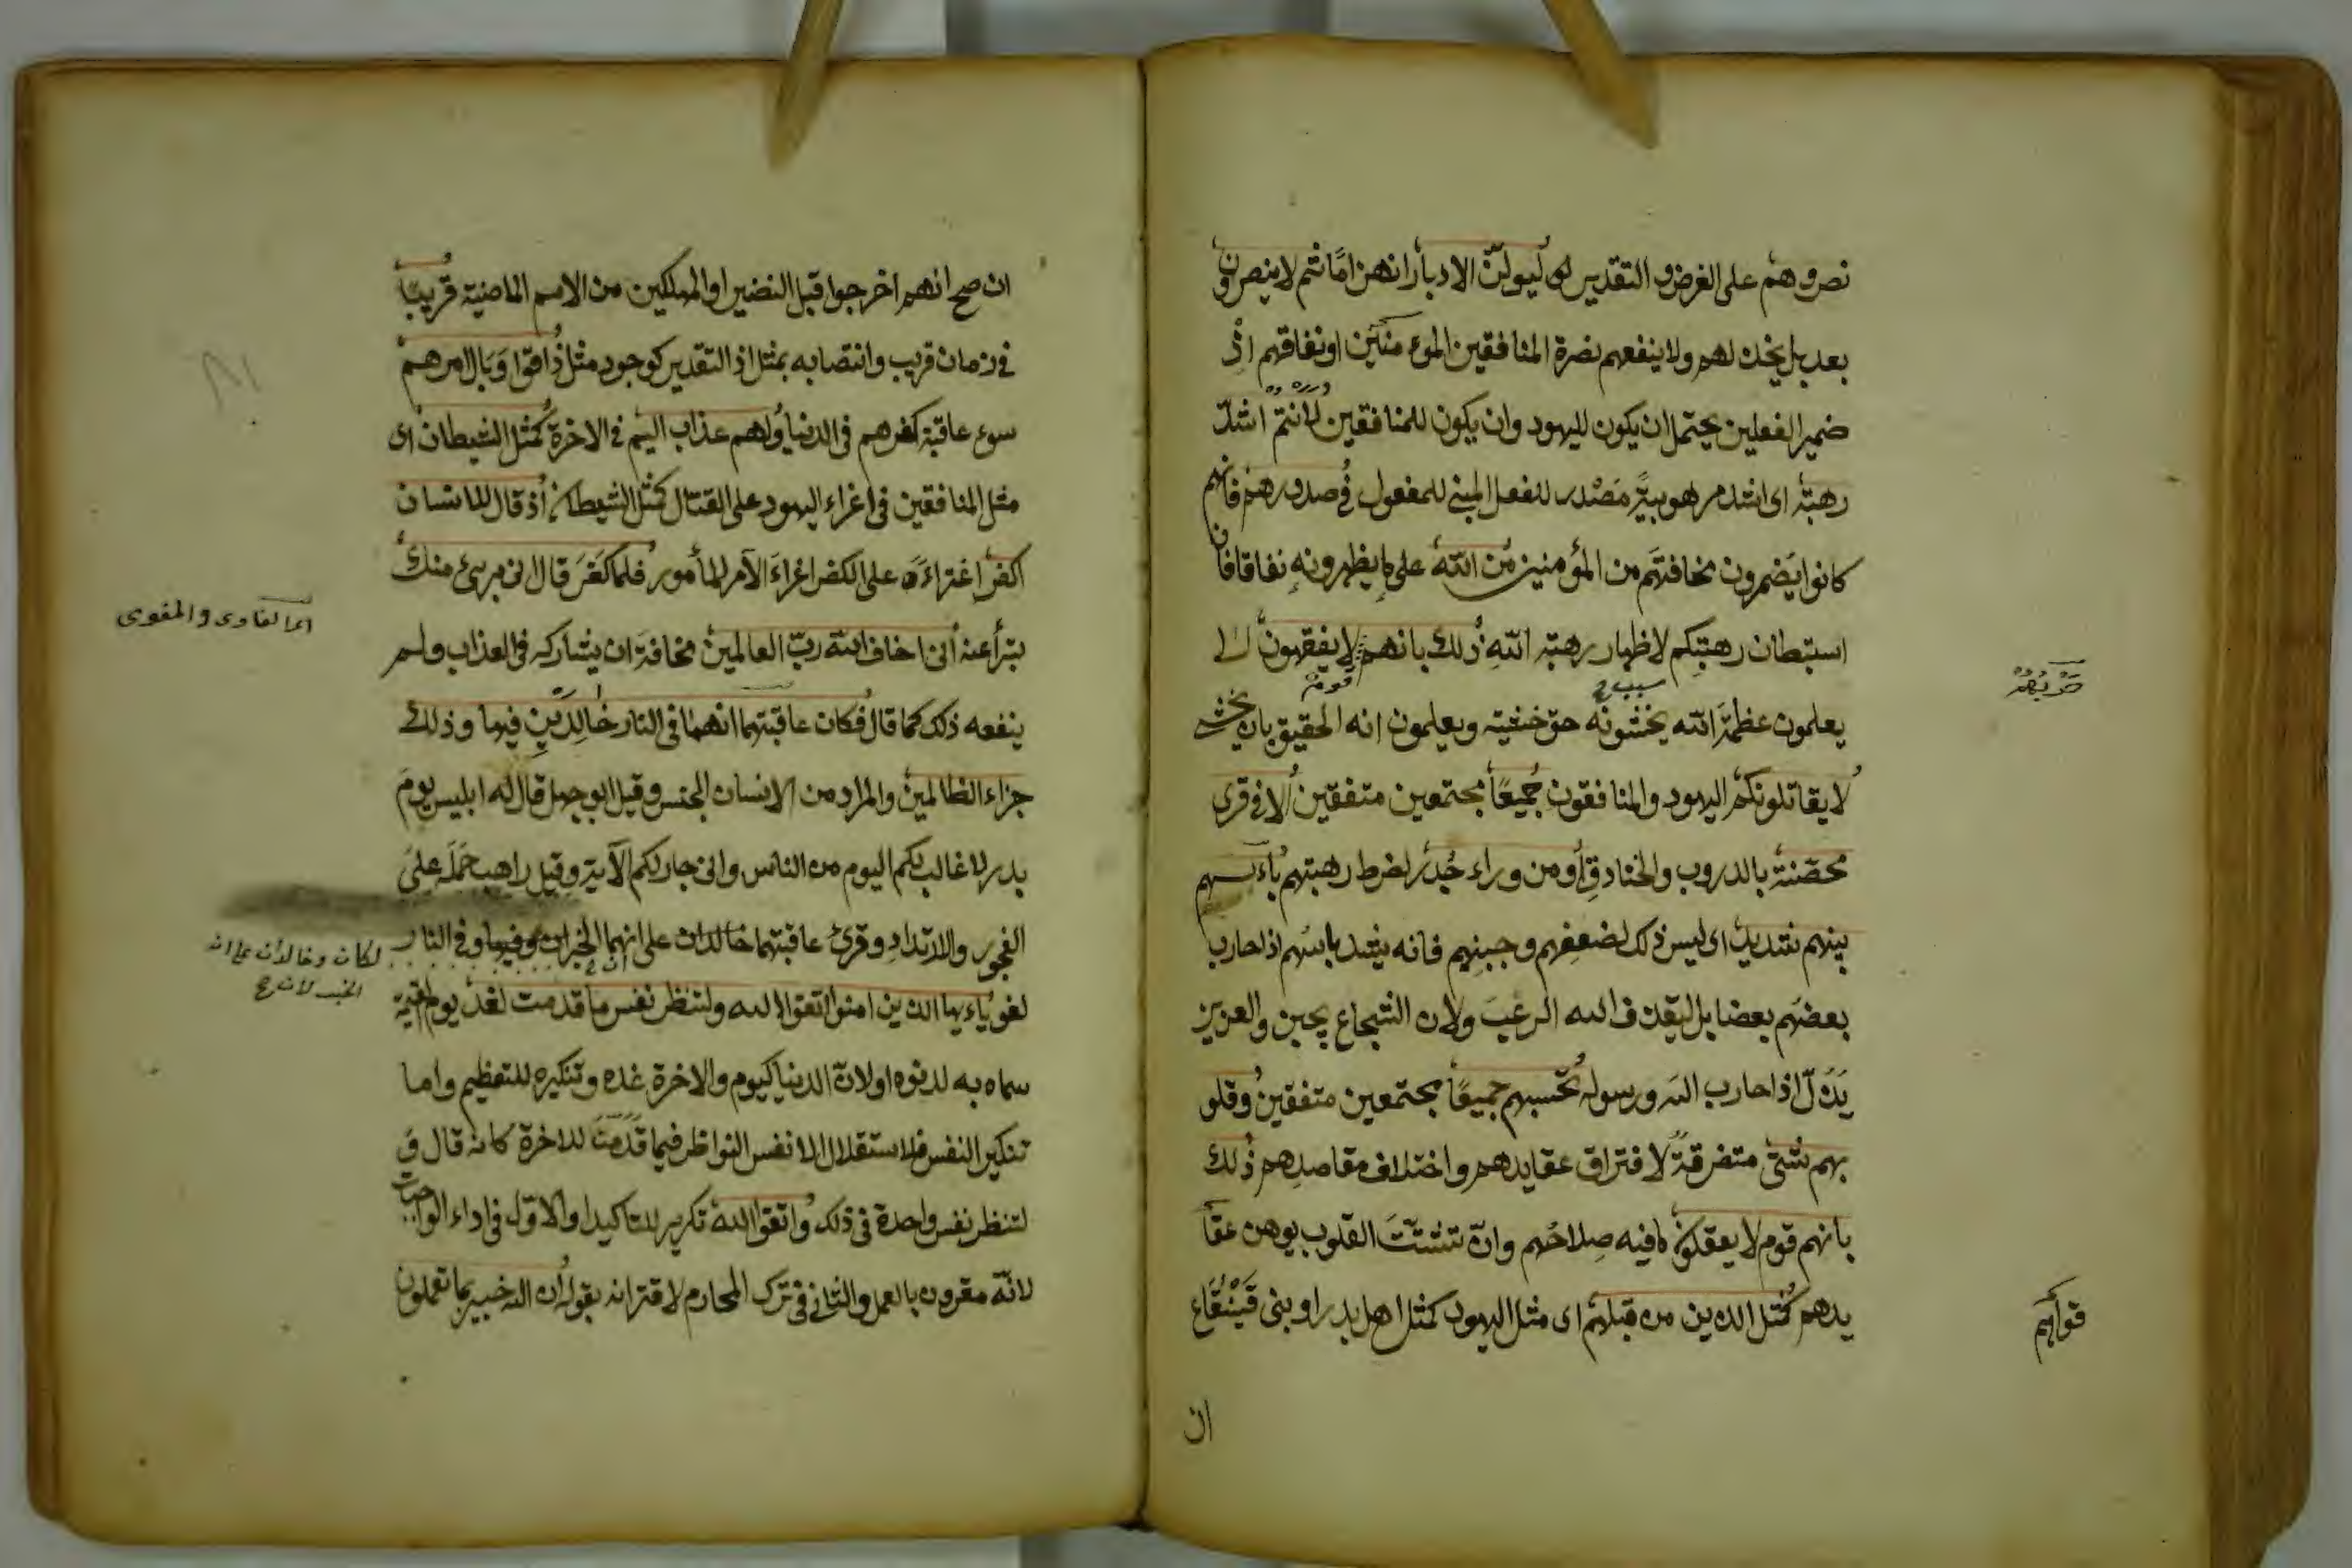 نصروهم على الفرض والتقدير ليولن الادبار انهزاما ثم لا ينصرون
بعد بل يخذلهم ولا ينفعهم نصرة المنافقين او نفاقهم اذ
ضمير الفعلين يحتمل ان يكون لليهود وان يكون للمنافقين لانتم اشد
رهبة اى اشد مرهوبية مصدر للفعل المبنى للمفعول فى صدورهم فانهم
كانوا يضمرون مخافتهم من المؤمنين من الله على ما يظهرونه نفاقا فان
استبطان رهبتكم لاظهار رهبة الله ذلك بانهم قوم لا يفقهون لا
يعلمون عظمة الله يخشونه حق خشيته ويعلمون انه الحقيق بان يخشى
لا يقاتلونكم اليهود والمنافقون جميعا مجتمعين متفقين الا فى قرى
محصنة بالدروب والخنادق او من وراء جدر لفرط رهبتهم باءسهم
بينهم شديد اى ليس ذلك لضعفهم وجبنهم فانه يشتد باسهم اذا حارب
بعضهم بعضا بل ليقذف الله الرعب ولان الشجاع يجبن والعزيز
يذل اذا حارب الله ورسوله تحسبهم جميعا مجتمعين متفقين وقلو
بهم شتى متفرقة لافتراق عقايدهم واختلاف مقاصدهم ذلك
بانهم قوم لا يعقلون ما فيه صلاحهم وان تشتت القلوب يوهن
يدهم كمثل الذين من قبلهم اى مثل اليهود كمثل اهل بدر او بنى قينقاع
قواهم
ان
ان صح انهم اخرجوا قبل النضير او المهلكين من الامم الماضية قريبا
فى زمان قريب وانتصابه بمثل اذ التقدير كوجود مثل ذاقوا وبال امرهم
سوء عاقبة كفرهم فى الدنيا ولهم عذاب اليم فى الاخرة كمثل الشيطان اى
مثل المنافقين فى اغراء اليهود على القتال كمثل الشيطان اذ قال للانسان
اكفر اغراءه على الكفر اغراء الآمر المأمور فلما كفر قال انى برىء منك
تبرأ عنه انى اخاف الله رب العالمين مخافة ان يشاركه فى العذاب ولم
ينفعه ذلك كما قال فكان عاقبتهما انهما فى النار خالدين فيها وذلك
جزاء الظالمين والمراد من الانسان الجنس وقيل ابو جهل قال له ابليس يوم
بدر لا غالب لكم اليوم من الناس وانى جار لكم الآية وقيل راهب حمله على
الفجور والارتداد وقرئ عاقبتهما خالدان على انهما الخبران وفيها وفى النار
لغو ياءيها الذين امنوا اتقوا الله ولتنظر نفس ما قدمت لغد يوم القيمة
سماه به لدنوه او لان الدنيا كيوم والاخرة غده وتنكيره للتعظيم واما
تنكير النفس فلاستقلال الانفس النواظر فيما قدمت للاخرة كانه قال و
لتنظر نفس واحدة فى ذلك واتقوا الله تكرير للتاكيد او الاول فى اداء الواجبات
لانه مقرون بالعمل والثانى فى ترك المحارم لاقترانه بقوله ان الله خبير بما تعملون